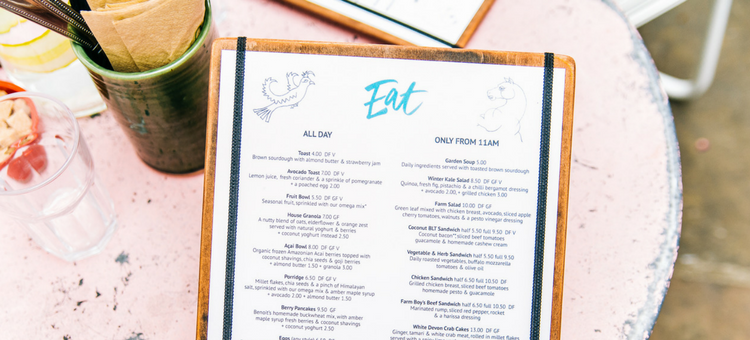 Eat
ALL DAY
Toast 4.00 DF V
Brown sourdough with almond butter & strawberry jam
Avocado Toast 7.00 DF V
Lemon juice, fresh coriander & a sprinkle of pomegranate
+ a poached egg 2.00
Fruit Bowl 5.50 DF V
Seasonal fruit, sprinkled with our omega mix*
House Granola 7.00 GF
A nutty blend of oats, elderflower & orange zest
served with natural yoghurt & berries
+ coconut yoghurt instead 2.50
Açai Bowl 8.00 DF V
Organic frozen Amazonian Acai berries topped with
coconut shavings, chia seeds & goji berries
+ almond butter 1.50 + granola 3.00
Porridge 6.50 DF GF V
Millet flakes, chia seeds & a pinch of Himalayan
salt, sprinkled with our omega mix & amber maple syrup
+ avocado 2.00 + almond butter 1.50
Berry Pancakes 9.50 GF
Benoit's homemade buckwheat mix, with amber
maple syrup fresh berries & coconut shavings
+ coconut yoghurt 2.50
Eggs
ONLY FROM 11AM
Garden Soup 5.00
Daily ingredients served with toasted brown sourdough
Winter Kale Salad 8.50 DF V
Quinoa, fresh fig, pistachio & a chilli bergamot dressing
+ avocado 2.00, + grilled chicken 3.00
Farm Salad 10.00 DF GF
Green leaf mixed with chicken breast, avocado, sliced apple
cherry tomatoes, walnuts & a pesto vinegar dressing
Coconut BLT Sandwich half 5.50 full 9.50 DF V
Coconut bacon**, sliced beef tomatoes
guacamole & homemade cashew cream
Vegetable & Herb Sandwich half 5.50 full 9.50
Daily roasted vegetables, buffalo mozzarella
tomatoes & olive oil
Chicken Sandwich half 6.50 full 10.50 DF
Grilled chicken breast, sliced beef tomatoes
homemade pesto & guacamole
Farm Boy's Beef Sandwich half 6.50 full 10.50 DF
Marinated rump, sliced red pepper, rocket
& a harissa dressing
White Devon Crab Cakes 13.00 DF GF
Ginger, tamari & white crab meat, rolled in millet flakes